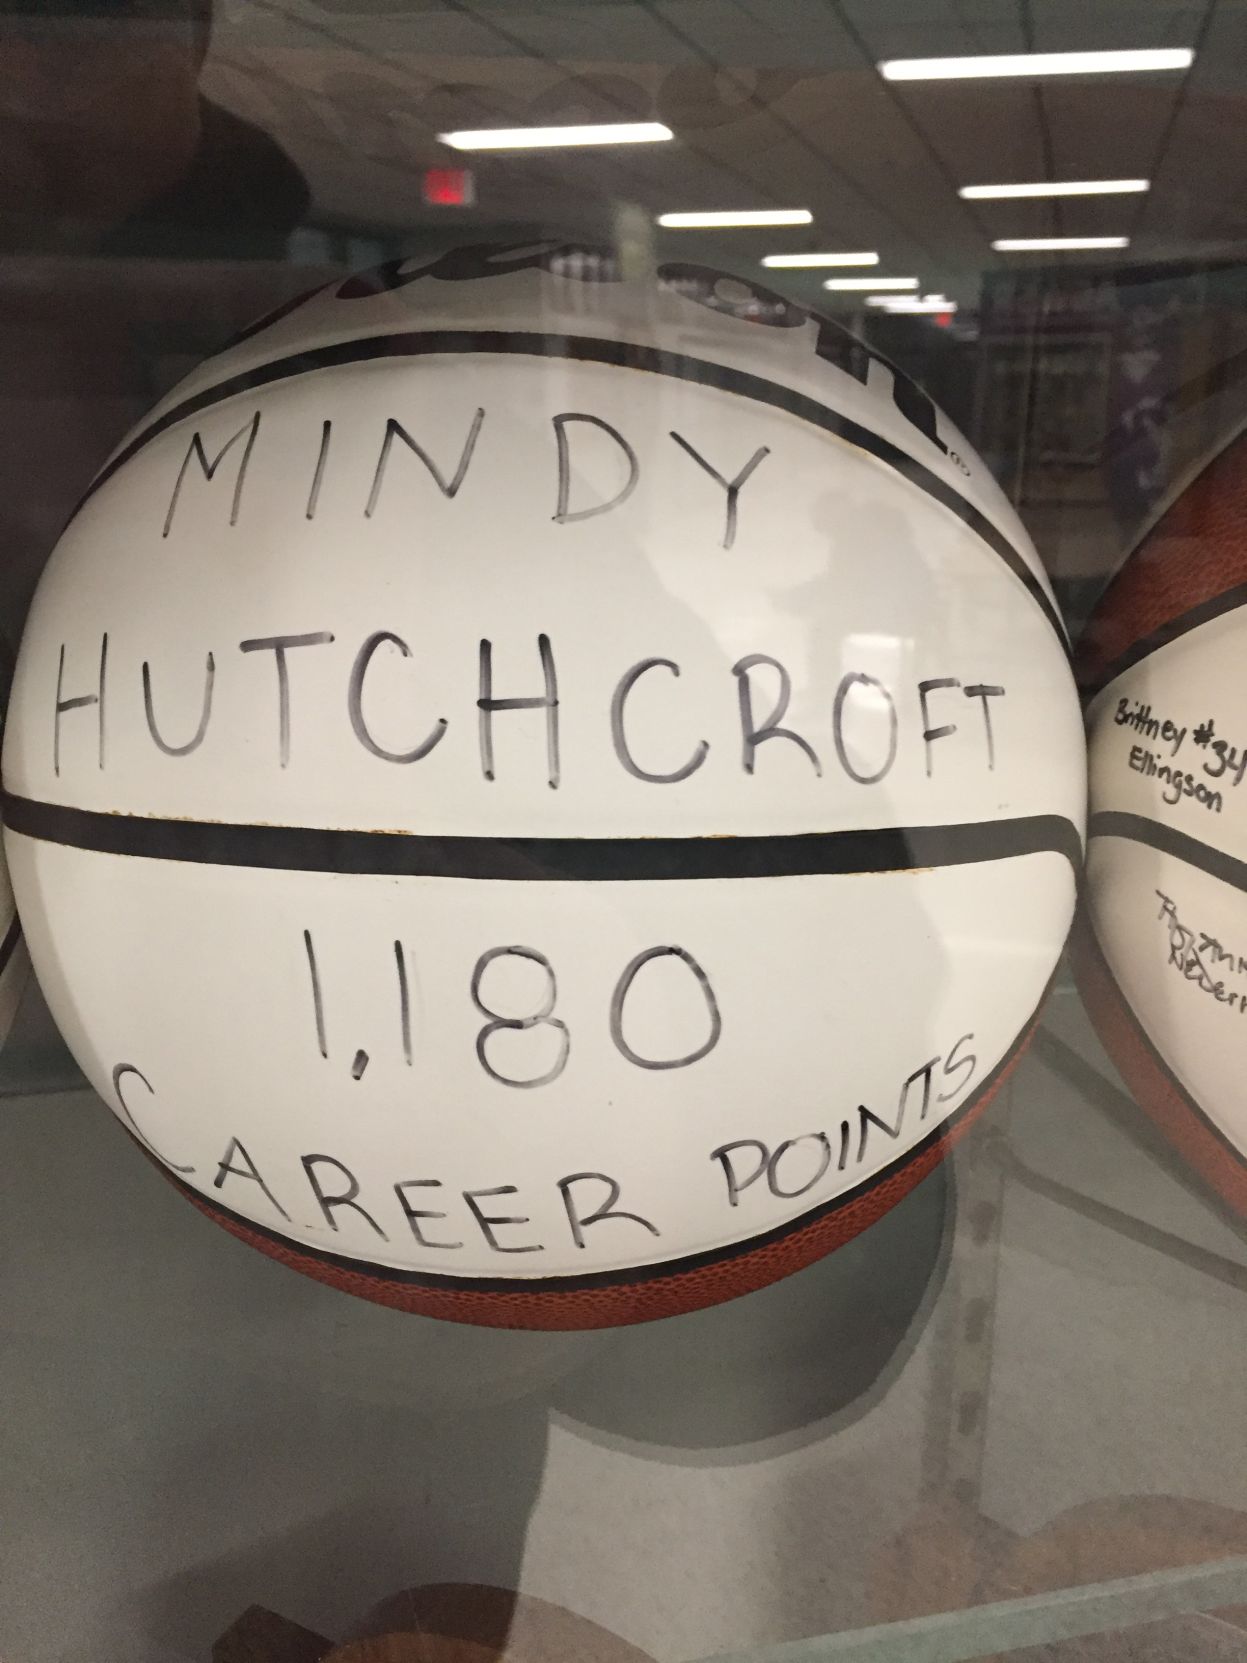 MINDY
HUTCHCROFT
1,180
CAREER POINTS
Brittney #34
Ellingson